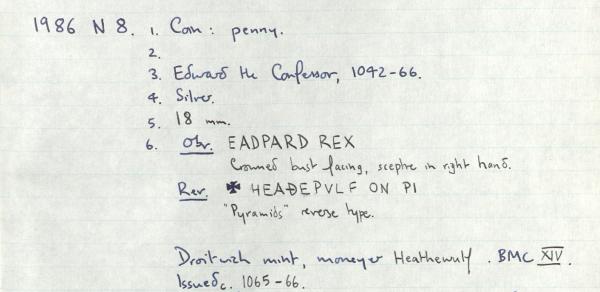 1986 N 8. 1. Coin: penny.
2.
3. Edward the Confessor, 1042-66.
4. Silver.
5. 18 mm.
6. Obv. EADPARD REX
Crowned bust facing, sceptre in right hand.
Rev. ✠ HEAĐEPVLF ON PI
"Pyramids" reverse type.
Droitwich mint, moneyer Heathewulf. BMC XIV.
Issued c. 1065-66.